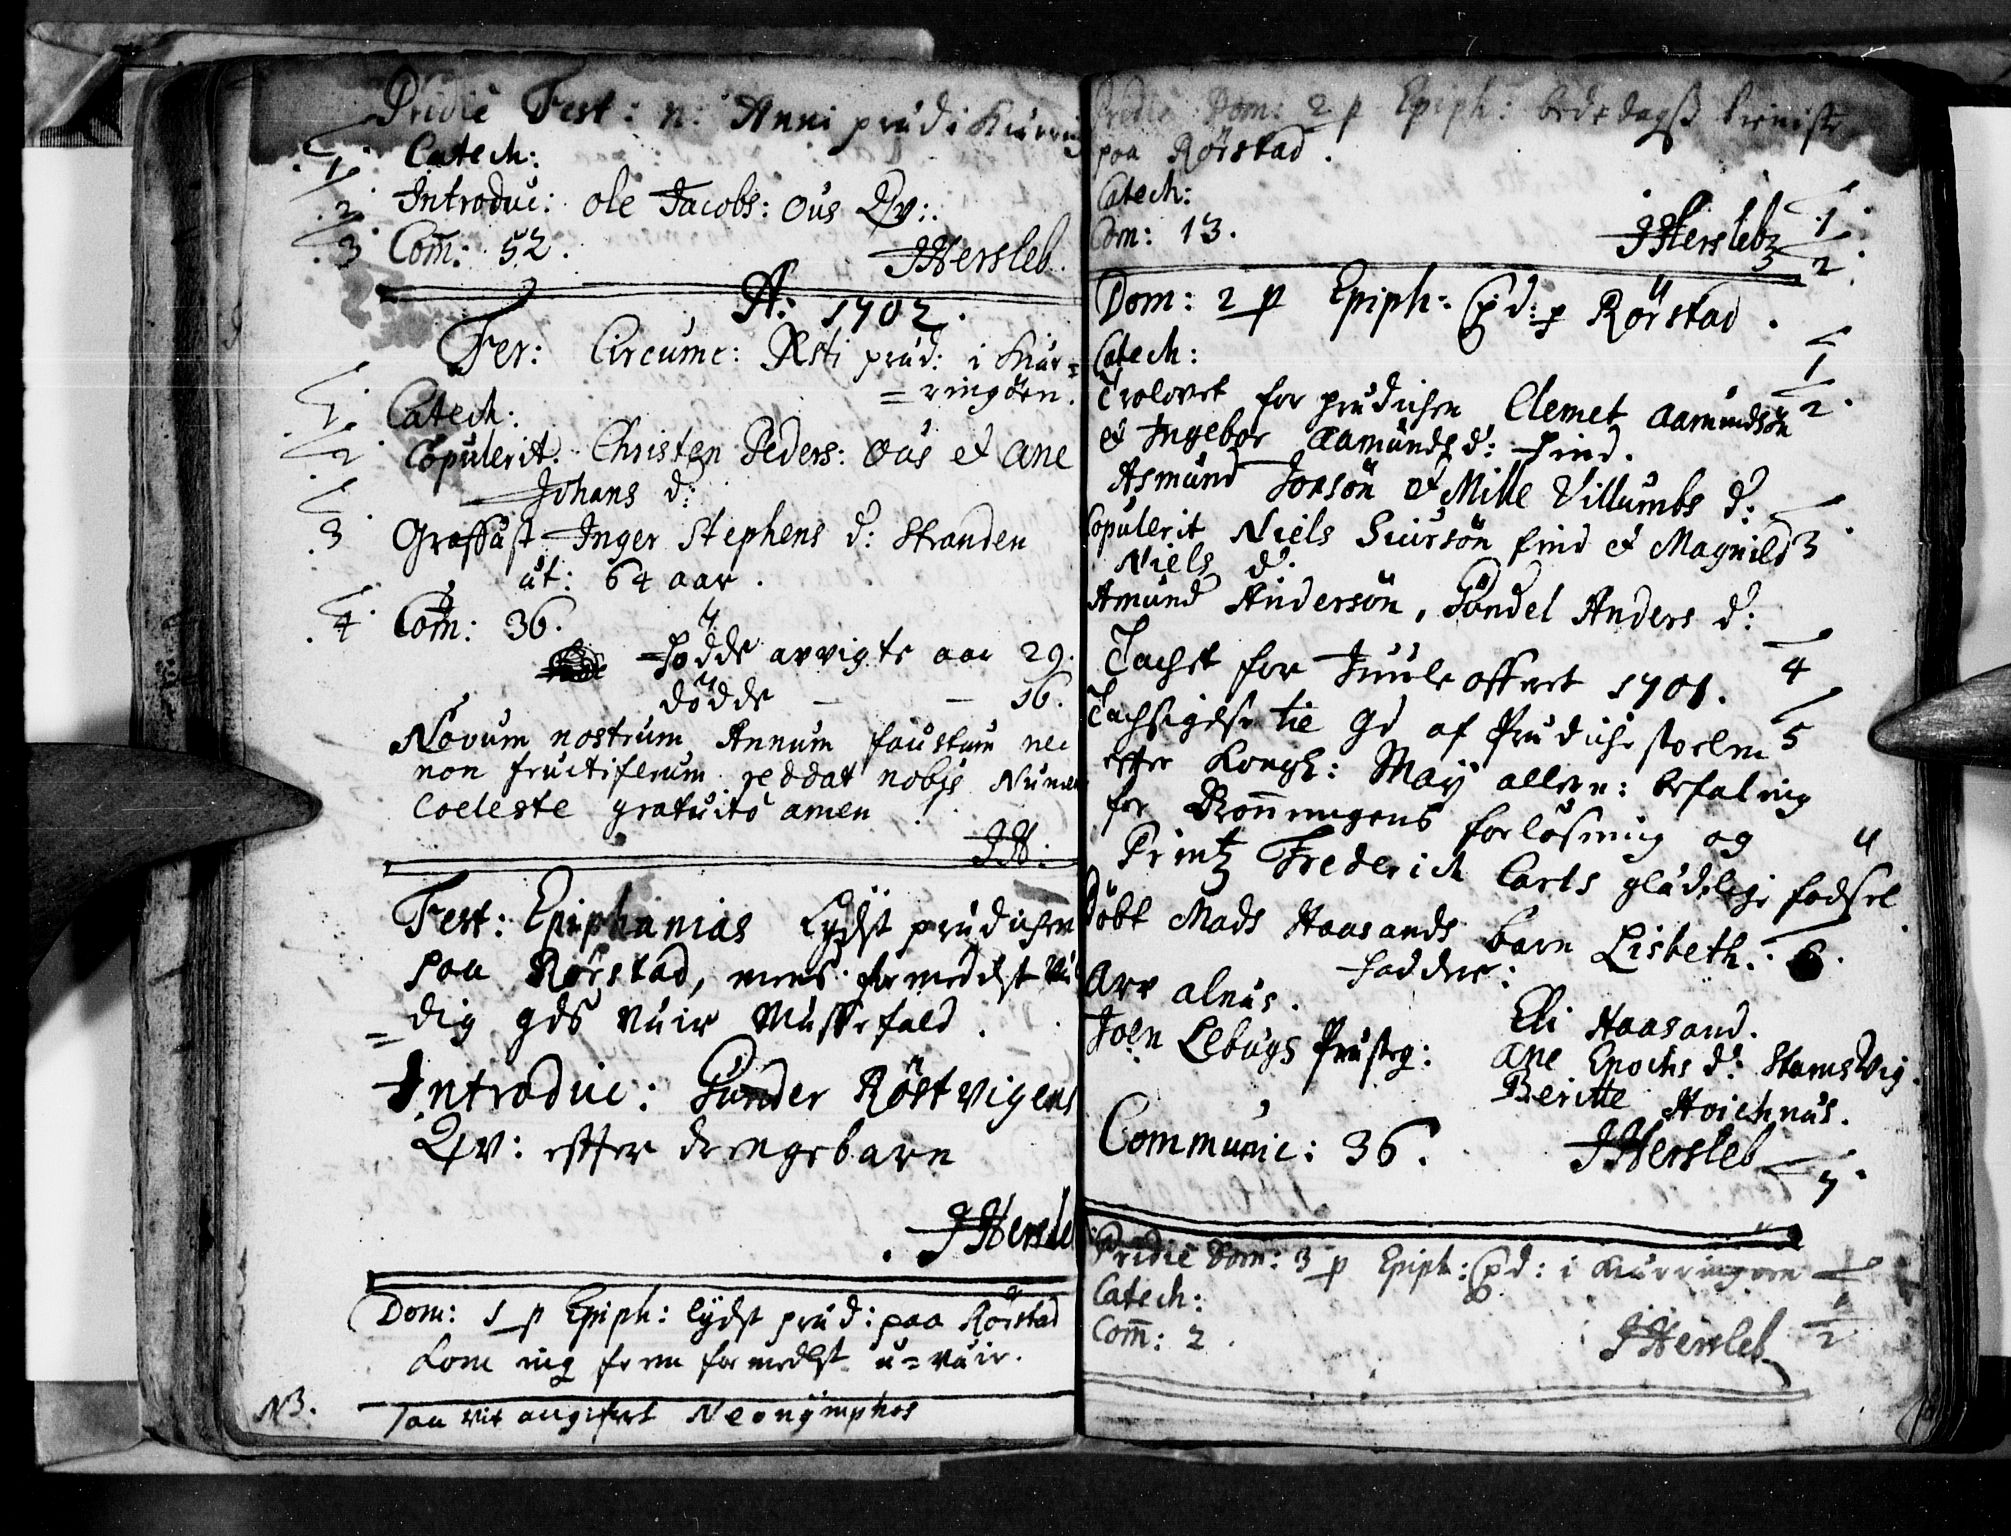 Pridie Fest: n: Anni præd i Kierring
1. Catech:
2. Introduc: ole Jacobs: ous Qv:
3. Com̄: 52.
JHersleb.
A: 1702.
Fer: Circumc: Xsti præd: i Kier=
=ringöen.
1. Catech:
2. Copulerit. Christen Peders: ous et ane
Johans d:
3. Graffæst Inger Stephens d: Stranden
æt: 64 aar.
4. Com̄: 36.
födde avvigte aar 29.
dödde — — 16.
Novum nostrum Annum faustum nec
non fructiferum reddat nobis Numen
Coeleste gratuito amen!
JH:
Fest: Epiphanias Lydst prædichen
paa Rörstad, mens formedelst
=dig gds vær Messefald.
Introduc: Gunder Röstvigens
Qv: effter drengebarn
JHersle
Dom: 1 p Epiph: lydst præd: paa Rörstad
kom ieg frem formedelst u=vær.
NB. Paa vie angifvet Neonymphos
Pridie Dom: 2 p Epiph: bededagss tieniste
paa Rörstad.
Catech: 1.
Com: 13. 2.
JHersleb
Dom: 2 p Epiph: præd: p Rörstad.
Catech: 1
Trolovet for prædichen Clemet Aamundsön 2.
et Ingebor Aamunds d: find.
Asmund Jonsön et Mille Villumbs d:
Copulerit Niels Siursön find et Magnild 3.
Niels d:
Amund Andersön, Göndel Anders d:
Tachet for Juule offeret 1701. 4
Tachsigelse til Gd af Prædichestoelen 5
effter Kongl: May allern: befaling
for Dronningens forlösning og
Printz Frederich Carls glædelige födsel.
Döbt Mads Haasands barn Lisbeth. 6.
fadder:
Arv alnæs.
Eli Haasand.
Joen Lebugs Præsteg:
Ane Epochs d: Stamsvig.
Beritte Hoichnæs.
Communic: 36.
JHersleb 7.
Pridie Dom: 3 p Epiph: præd: i Kierringöen
Catech: 1
Com̄: 2. 2
JHersleb